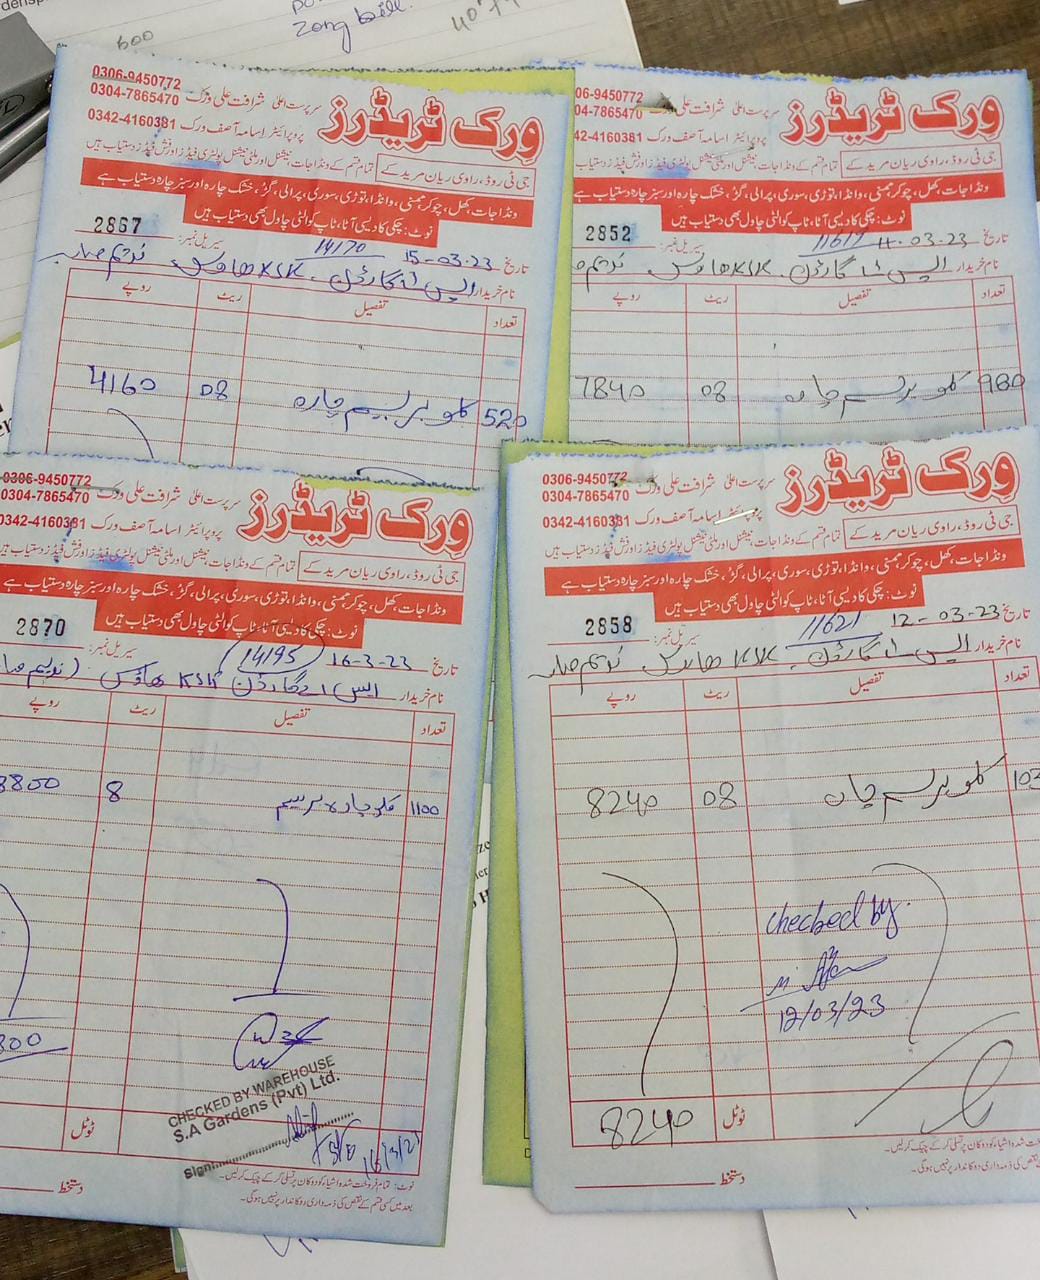 600
Zong bill
0306-9450772
0304-7865470
سرپرست اعلیٰ شرافت علی ورک
0342-4160381
پروپرائیٹر اسامہ آصف ورک
ورک ٹریڈرز
جی ٹی روڈ، راوی ریان مرید کے
تمام قسم کے ونڈا جات نیشنل اور ملٹی نیشنل پولٹری فیڈز اور فش فیڈز دستیاب ہیں
ونڈا جات، کھل، چوکر، وانڈا، توڑی، سوری، پرالی، گڑ، خشک چارہ اور سبز چارہ دستیاب ہے
نوٹ: چکی کا دیسی آٹا، ٹاپ کوالٹی چاول بھی دستیاب ہیں
2867
سیریل نمبر:
14170
تاریخ 15-03-23
نام خریدار ایس اے گارڈن KSK ھاؤس ندیم صاب
تعداد تفصیل ریٹ روپے
520 کلو برسیم چارہ 08 4160
06-9450772
04-7865470
سرپرست اعلیٰ شرافت علی ورک
42-4160381
پروپرائیٹر اسامہ آصف ورک
ورک ٹریڈرز
جی ٹی روڈ، راوی ریان مرید کے
تمام قسم کے ونڈا جات نیشنل اور ملٹی نیشنل پولٹری فیڈز اور فش فیڈز دستیاب ہیں
ونڈا جات، کھل، چوکر، وانڈا، توڑی، سوری، پرالی، گڑ، خشک چارہ اور سبز چارہ دستیاب ہے
نوٹ: چکی کا دیسی آٹا، ٹاپ کوالٹی چاول بھی دستیاب ہیں
2852
سیریل نمبر:
11617
تاریخ 11-03-23
نام خریدار ایس اے گارڈن KSK ھاؤس ندیم
تعداد تفصیل ریٹ روپے
980 کلو برسیم چارہ 08 7840
0306-9450772
0304-7865470
سرپرست اعلیٰ شرافت علی ورک
0342-4160381
پروپرائیٹر اسامہ آصف ورک
ورک ٹریڈرز
جی ٹی روڈ، راوی ریان مرید کے
تمام قسم کے ونڈا جات نیشنل اور ملٹی نیشنل پولٹری فیڈز اور فش فیڈز دستیاب ہیں
ونڈا جات، کھل، چوکر، وانڈا، توڑی، سوری، پرالی، گڑ، خشک چارہ اور سبز چارہ دستیاب ہے
نوٹ: چکی کا دیسی آٹا، ٹاپ کوالٹی چاول بھی دستیاب ہیں
2870
سیریل نمبر:
14195
تاریخ 16-3-23
نام خریدار ایس اے گارڈن KSK ھاؤس (ندیم
تعداد تفصیل ریٹ روپے
1100 کلو چارہ برسیم 8 8800
800
CHECKED BY WAREHOUSE
S.A Gardens (Pvt) Ltd.
Sign:
ٹوٹل
نوٹ: تمام فروخت شدہ اشیاء کو دوکان پر تسلی کر کے چیک کر لیں۔
بعد میں کسی قسم کے نقص کی ذمہ داری دوکاندار پر نہیں ہوگی۔
دستخط
0306-9450772
0304-7865470
سرپرست اعلیٰ شرافت علی ورک
0342-4160381
پروپرائیٹر اسامہ آصف ورک
ورک ٹریڈرز
جی ٹی روڈ، راوی ریان مرید کے
تمام قسم کے ونڈا جات نیشنل اور ملٹی نیشنل پولٹری فیڈز اور فش فیڈز دستیاب ہیں
ونڈا جات، کھل، چوکر، وانڈا، توڑی، سوری، پرالی، گڑ، خشک چارہ اور سبز چارہ دستیاب ہے
نوٹ: چکی کا دیسی آٹا، ٹاپ کوالٹی چاول بھی دستیاب ہیں
2858
سیریل نمبر:
11621
تاریخ 12-03-23
نام خریدار ایس اے گارڈن KSK ھاؤس ندیم صاب
تعداد تفصیل ریٹ روپے
103 کلو برسیم چارہ 08 8240
checked by
12/03/23
ٹوٹل 8240
شدہ اشیاء کو دوکان پر تسلی کر کے چیک کر لیں۔
نقص کی ذمہ داری دوکاندار پر نہیں ہوگی۔
دستخط